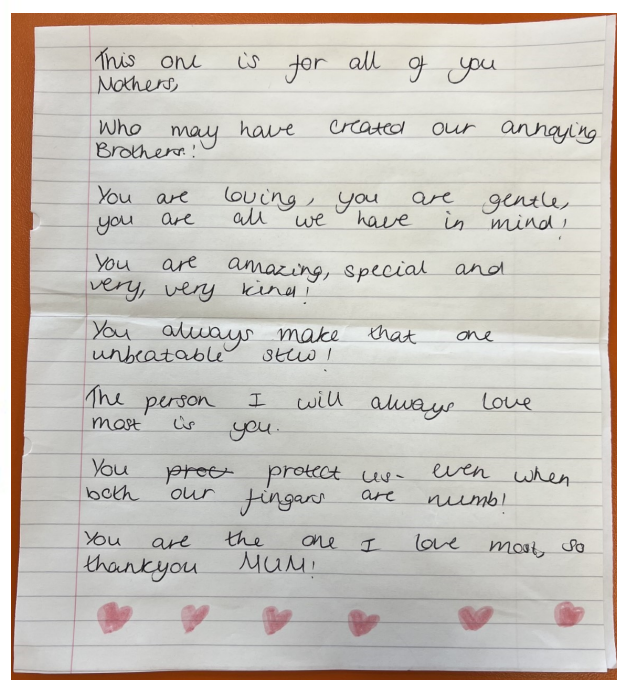 This one is for all of you
Mothers,
Who may have created our annoying
Brothers!
You are loving, you are gentle,
you are all we have in mind!
You are amazing, special and
very, very kind!
You always make that one
unbeatable stew!
The person I will always love
most is you.
You proc protect us- even when
both our fingars are numb!
You are the one I love most, so
thankyou MUM!